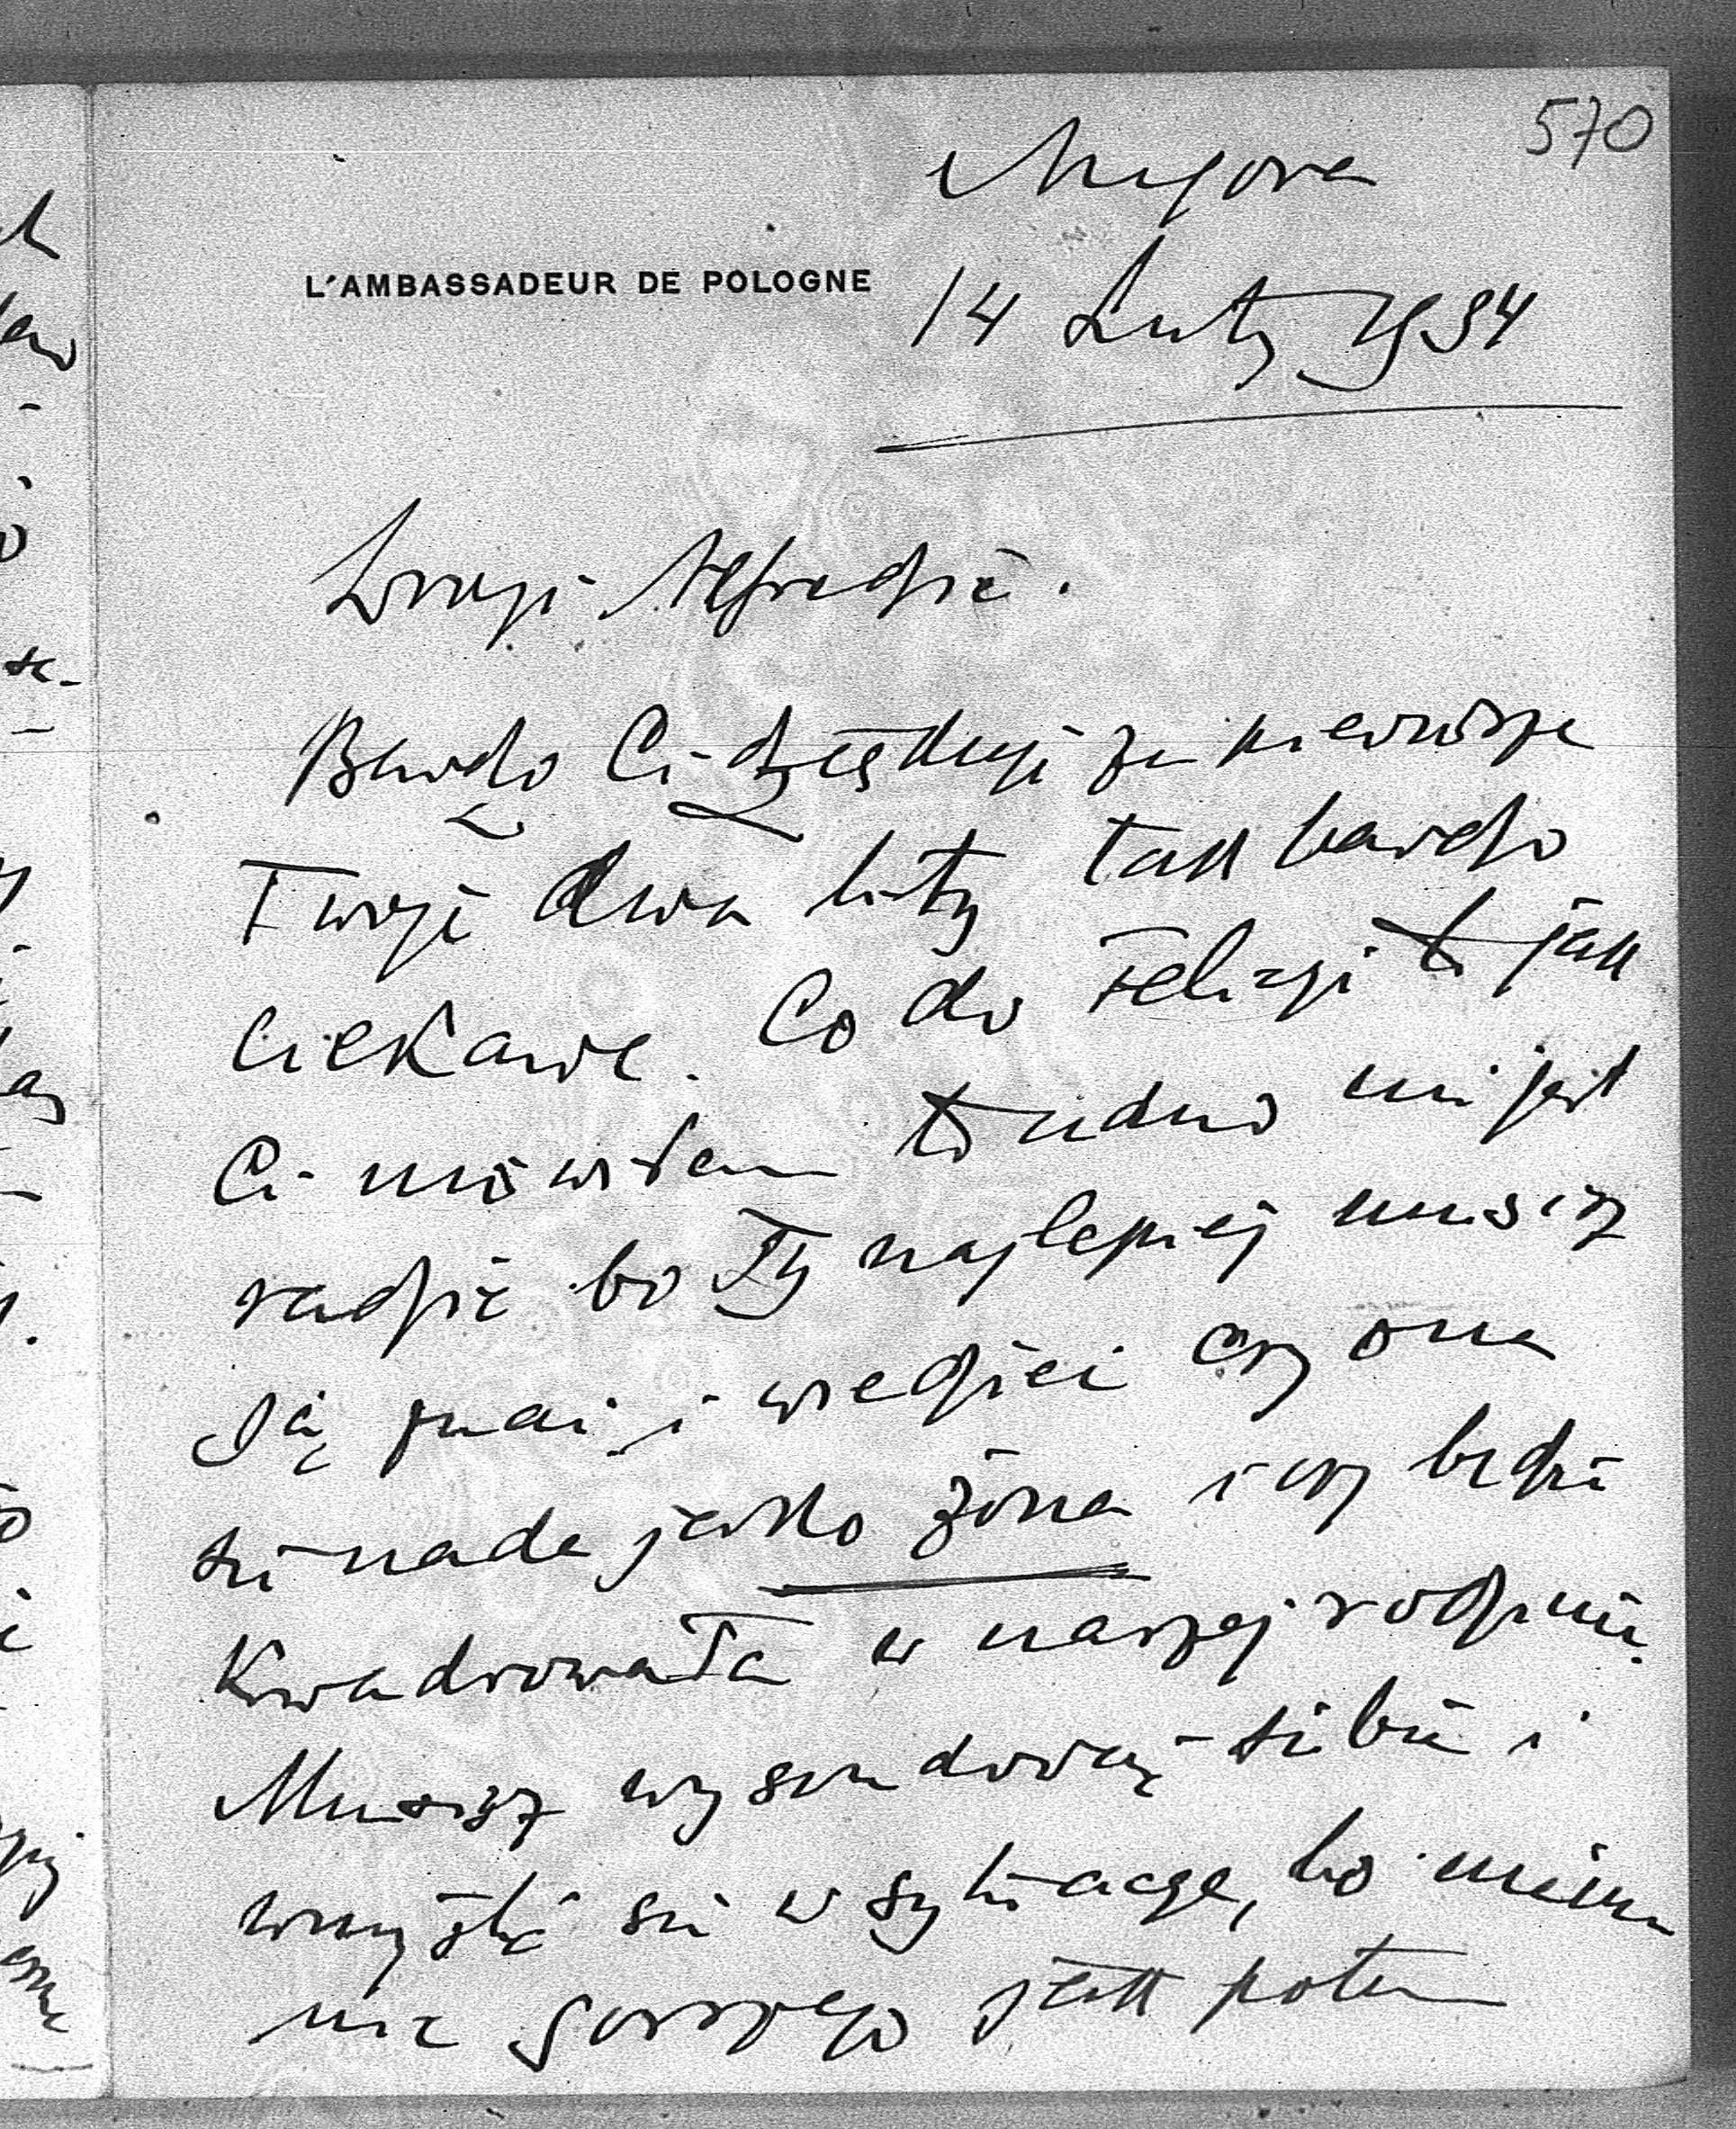 570
L'AMBASSADEUR DE POLOGNE
14 Luty 1934
Drogi Alfredzie.
Bardzo Ci dziękuję za pierwsze
Twoje dwa listy tak bardzo
ciekawe. Co do Felicji to jak
Ci mówiłam trudno mi jest
radzić bo Ty najlepiej musisz
Ją znać i wiedzieć czy ona
się nada jako żona i czy będzie
kwadrowała w naszej rodzinie.
Musisz wysondować siebie i
wmyśleć się w sytuację, bo niema
nic gorszego jak potem